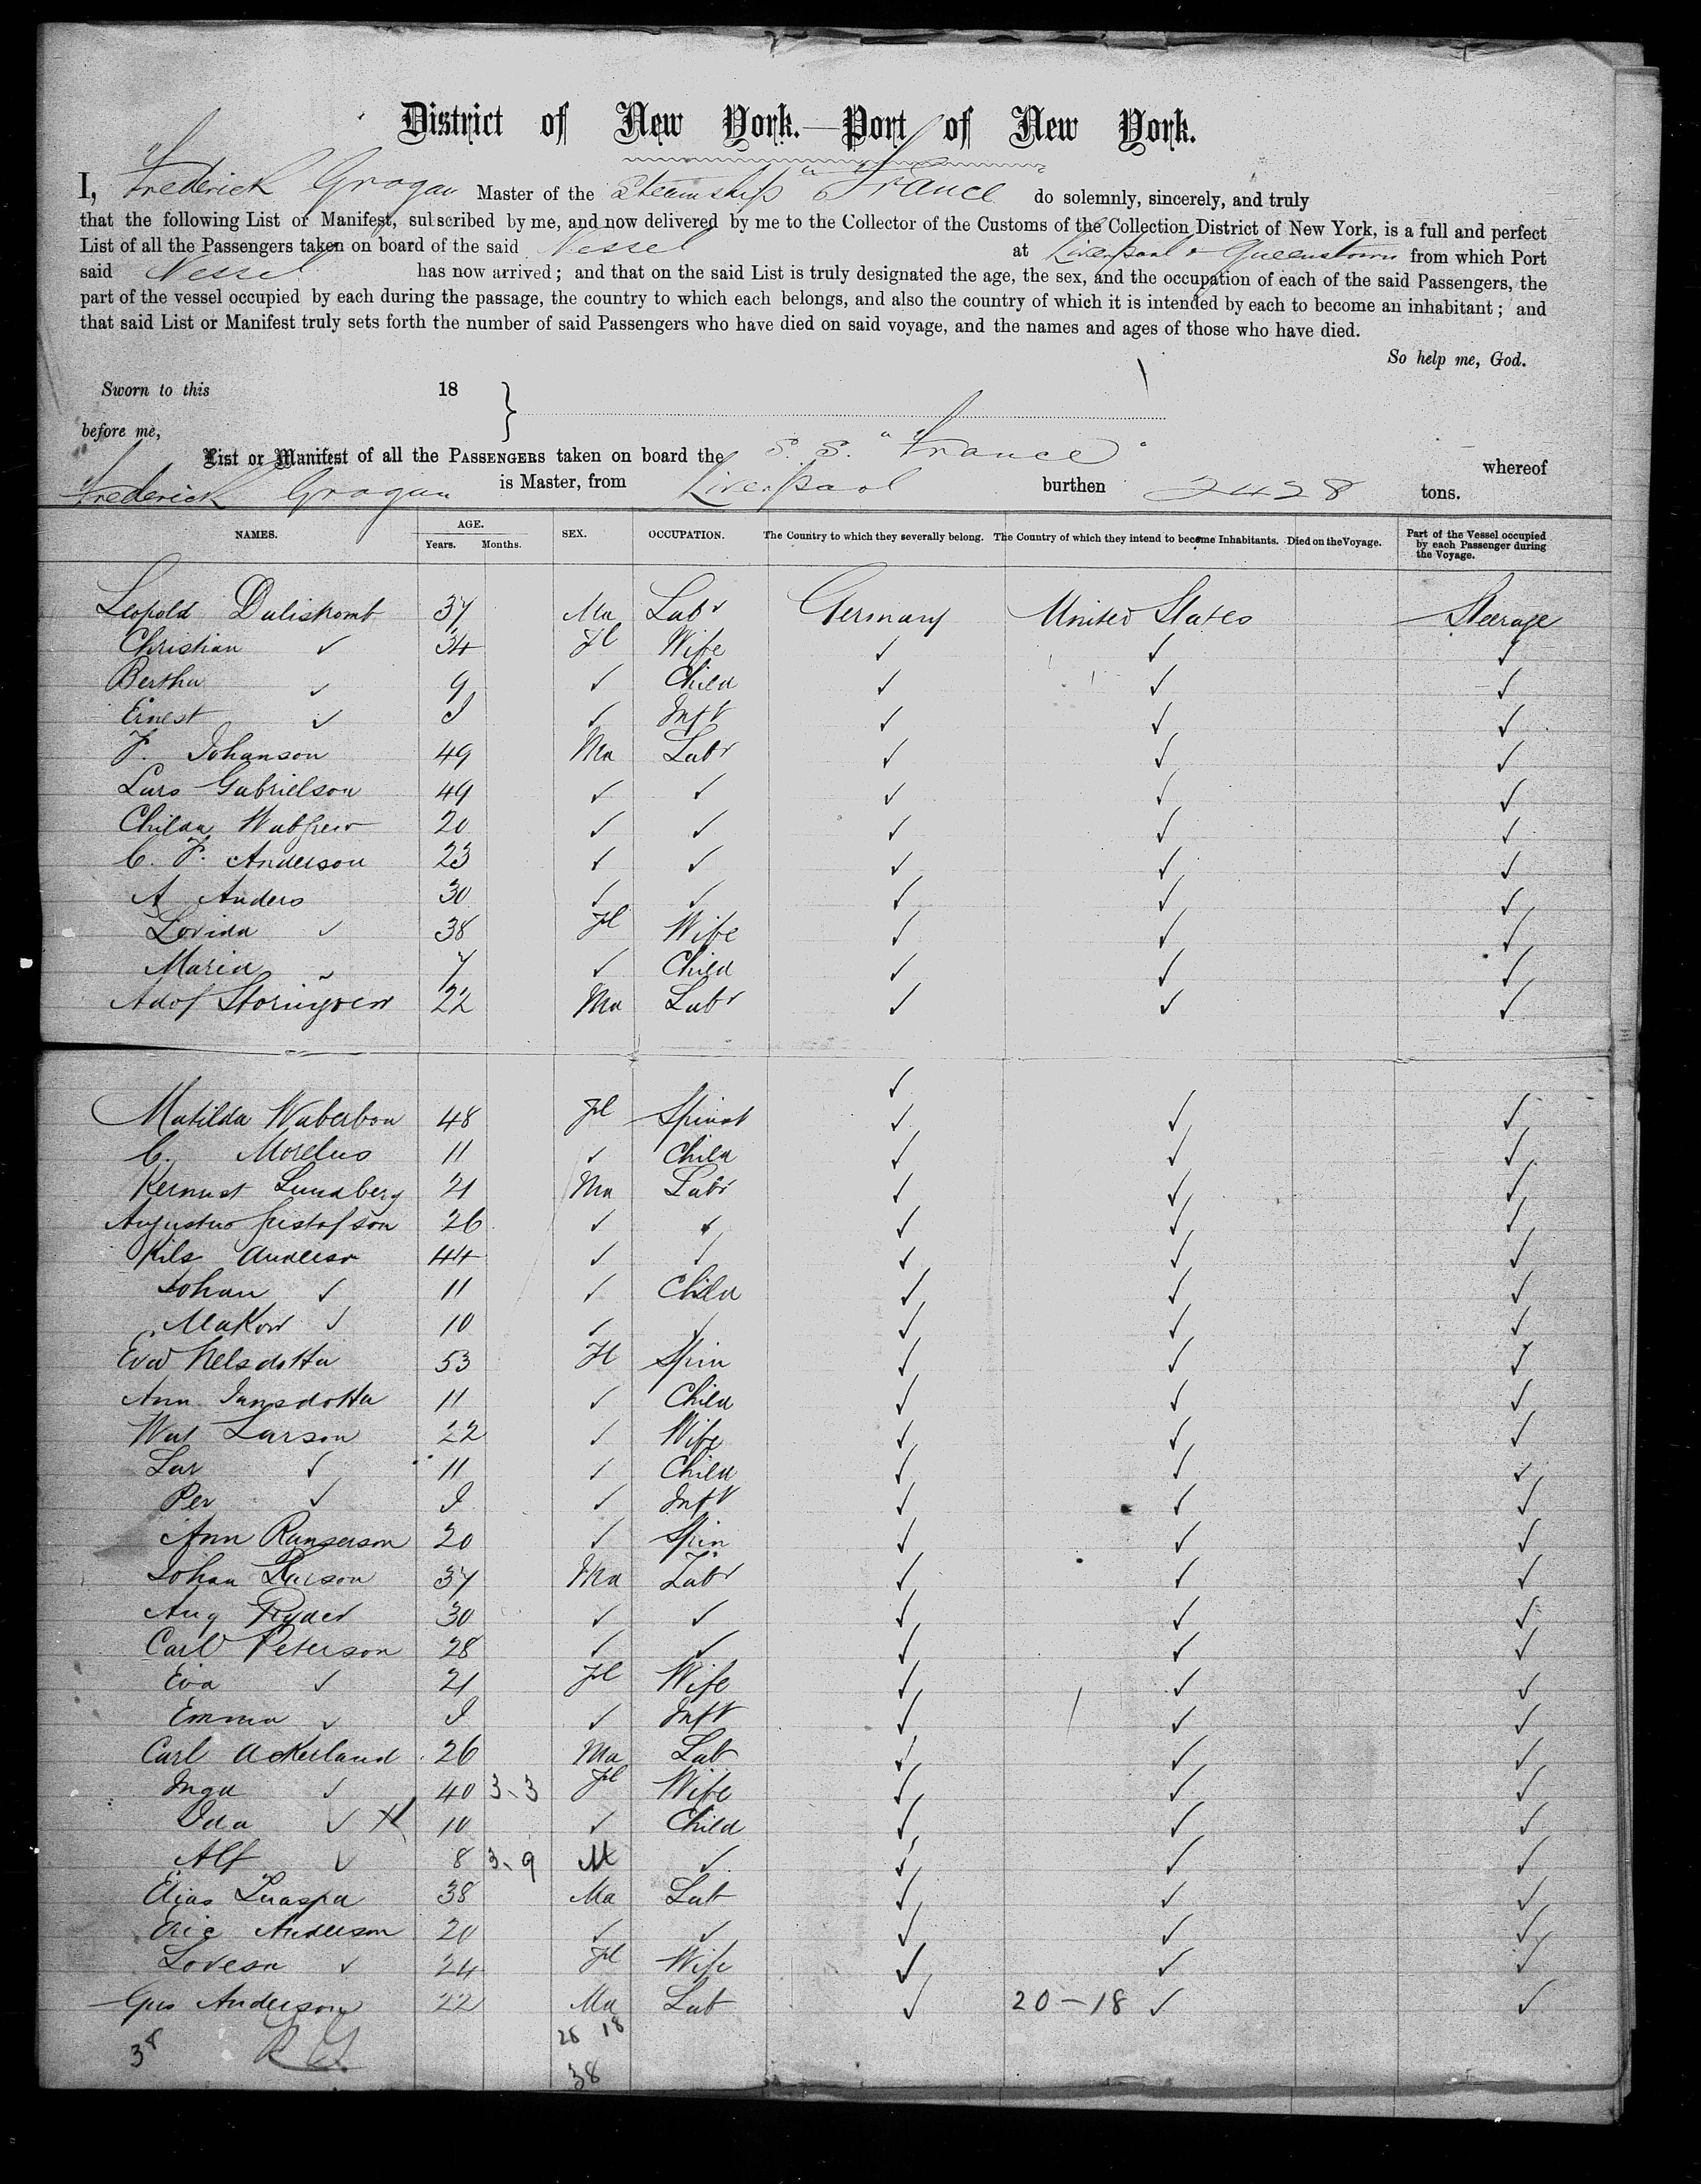 District of New York.—Port of New York.
I, Frederick Grogan Master of the Steamship "France" do solemnly, sincerely, and truly
that the following List or Manifest, subscribed by me, and now delivered by me to the Collector of the Customs of the Collection District of New York, is a full and perfect
List of all the Passengers taken on board of the said Vessel at Liverpool & Queenstown from which Port
said Vessel has now arrived; and that on the said List is truly designated the age, the sex, and the occupation of each of the said Passengers, the
part of the vessel occupied by each during the passage, the country to which each belongs, and also the country of which it is intended by each to become an inhabitant; and
that said List or Manifest truly sets forth the number of said Passengers who have died on said voyage, and the names and ages of those who have died.
So help me, God.
Sworn to this 18
before me,
List or Manifest of all the PASSENGERS taken on board the S. S. "France" whereof
Frederick Grogan is Master, from Liverpool burthen 2428 tons.
NAMES. AGE. Years. Months. SEX. OCCUPATION. The Country to which they severally belong. The Country of which they intend to become Inhabitants. Died on the Voyage. Part of the Vessel occupied by each Passenger during the Voyage.
Leopold Daliskomb 37 Ma Labr Germany United States Steerage
Christian ✓ 34 Fl Wife ✓ ✓ ✓
Bertha ✓ 9 ✓ Child ✓ ✓ ✓
Ernest ✓ I ✓ Inft ✓ ✓ ✓
F. Johanson 49 Ma Labr ✓ ✓ ✓
Lars Gabrielson 49 ✓ ✓ ✓ ✓ ✓
20 ✓ ✓ ✓ ✓ ✓
C. F. Anderson 23 ✓ ✓ ✓ ✓ ✓
A Anders 30 ✓ ✓ ✓ ✓ ✓
Lovida ✓ 38 Fl Wife ✓ ✓ ✓
Maria ✓ 7 ✓ Child ✓ ✓ ✓
Adof 22 Ma Labr ✓ ✓ ✓
✓
Matilda Waberbon 48 Fl Spinst ✓ ✓ ✓
C. Morelius 11 ✓ Child ✓ ✓ ✓
Lundberg 21 Ma Labr ✓ ✓ ✓
Augustus Gustafson 26 ✓ ✓ ✓ ✓ ✓
Nils Anderso 44 ✓ ✓ ✓ ✓ ✓
Johan ✓ 11 ✓ Child ✓ ✓ ✓
✓ 10 ✓ ✓ ✓ ✓ ✓
Eva Nelsdotta 53 Fl Spin ✓ ✓ ✓
Ann Jansdotta 11 ✓ Child ✓ ✓ ✓
Larson 22 ✓ Wife ✓ ✓ ✓
Lar ✓ 11 ✓ Child ✓ ✓ ✓
Per ✓ I ✓ Inft ✓ ✓ ✓
Ann 20 ✓ Spin ✓ ✓ ✓
Johan Larson 37 Ma Labr ✓ ✓ ✓
Aug Ryder 30 ✓ ✓ ✓ ✓ ✓
Carl Peterson 28 ✓ ✓ ✓ ✓ ✓
Eva ✓ 21 Fl Wife ✓ ✓ ✓
Emma ✓ I ✓ Inft ✓ ✓ ✓
Carl Ackerland 26 Ma Lab ✓ ✓ ✓
Inga ✓ 40 3.3 Fl Wife ✓ ✓ ✓
Ida ✓ X 10 ✓ Child ✓ ✓ ✓
Alf ✓ 8 3.9 M ✓ ✓ ✓ ✓
Elias 38 Ma Lab ✓ ✓ ✓
Eric Anderson 20 ✓ ✓ ✓ ✓ ✓
Lovesa ✓ 24 Fl Wife ✓ ✓ ✓
Gus Anderson 22 Ma Lab ✓ 20-18 ✓ ✓
38 18
38